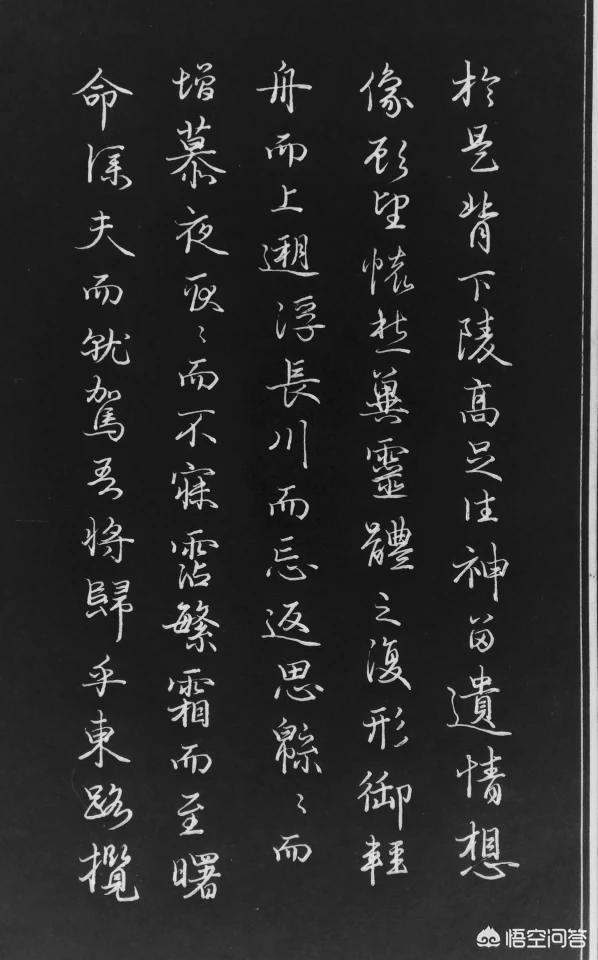 於是背下陵高足往神留遺情想
像顧望懷愁冀靈體之復形御輕
舟而上遡浮長川而忘返思緜〻而
增慕夜耿〻而不寐霑繁霜而至曙
命僕夫而就駕吾將歸乎東路攬
悟空问答